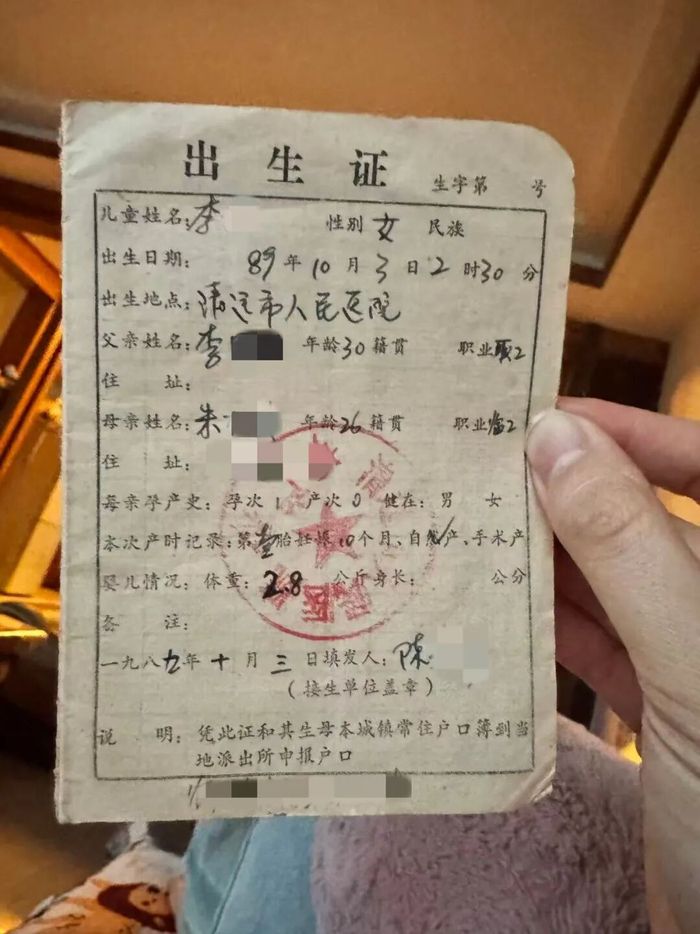 出生证
生字第 号
儿童姓名：李 性别 女 民族
出生日期： 89年10月3日2时30分
出生地点：清远市人民医院
父亲姓名：李 年龄30籍贯 职业
住 址：
母亲姓名：朱 年龄26籍贯 职业临工
住 址：
母亲孕产史：孕次1 产次0 健在：男 女
本次产时记录：第壹胎妊娠10个月、自然产、手术产
婴儿情况：体重：2.8 公斤身长： 公分
备 注：
一九八九年十月三日填发人：陈
（接生单位盖章）
说 明：凭此证和其生母本城镇常住户口簿到当
地派出所申报户口